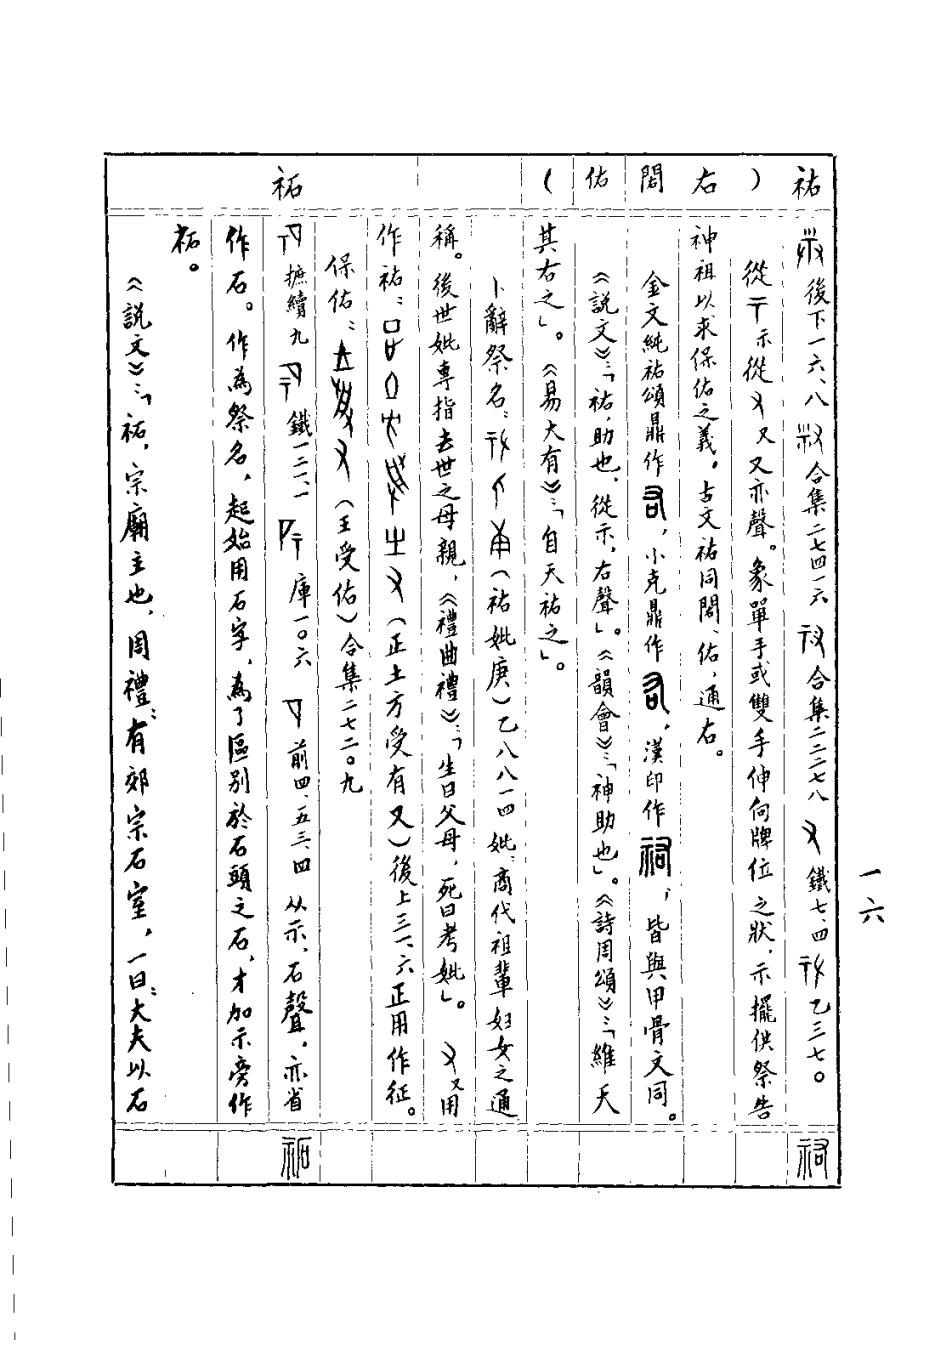 一六
祐（右閣佑） 祏
後下一六、八 合集二七四一六 合集二二二七八 鐵七、四 乙三七。
從示從又又亦聲。象單手或雙手伸向牌位之狀，示擺供祭告
神祖以求保佑之義。古文祐同閣、佑，通右。
金文純祐頌鼎作 ，小克鼎作 ，漢印作 ，皆與甲骨文同。
《說文》：「祐，助也，從示，右聲」。《韻會》：「神助也」。《詩周頌》：「維天
其右之」。《易大有》：「自天祐之」。
卜辭祭名： （祐妣庚）乙八八一四 妣：商代祖輩妇女之通
稱。後世妣專指去世之母親，《禮曲禮》：「生曰父母，死曰考妣」。又用
作祐： （正土方受有又）後上三一、六 正用作征。
保佑： （王受佑）合集二七二〇九
摭續九 鐵一二一、一 庫一〇六 前四、五三、四 从示、石聲，亦省
作石。作為祭名，起始用石字，為了區别於石頭之石，才加示旁作
祏。
《說文》：「祏，宗廟主也，周禮：有郊宗石室，一曰：大夫以石